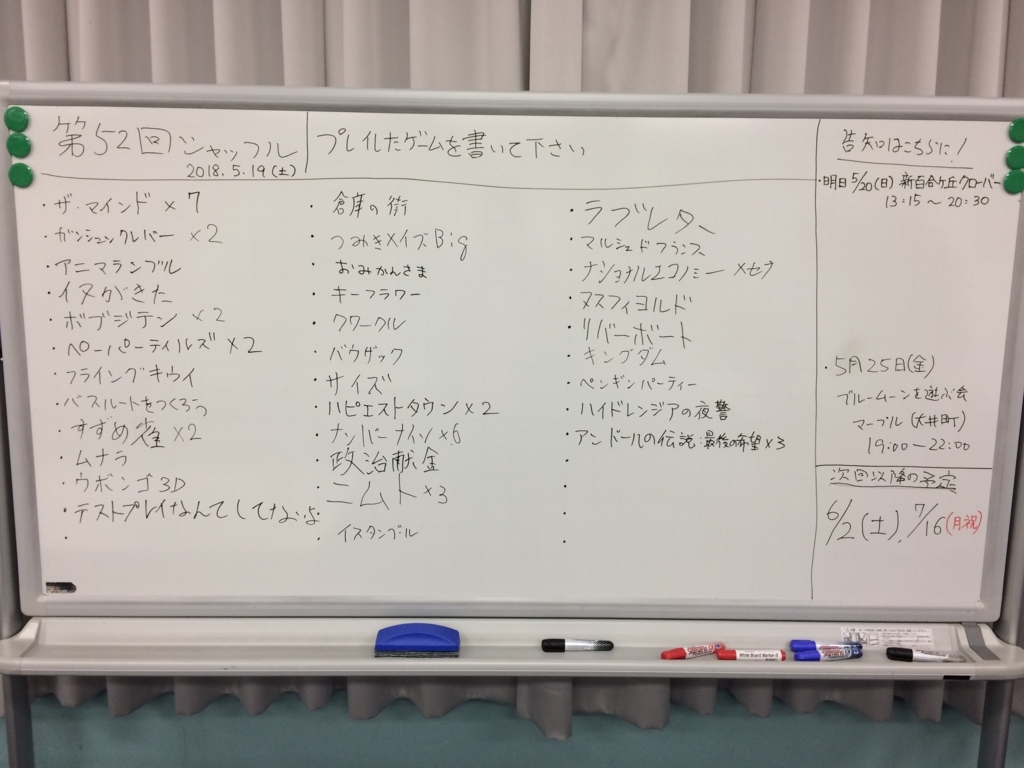 第52回シャッフル
2018.5.19(土)
プレイしたゲームを書いて下さい
・ザ・マインド × 7
・ガンシュンクレバー ×2
・アニマランブル
・イヌがきた
・ボブジテン ×2
・ペーパーテイルズ ×2
・フライングキウイ
・バスルートをつくろう
・すずめ雀 ×2
・ムナラ
・ウボンゴ3D
・テストプレイなんてしてないよ
・
・倉庫の街
・つみきメイズBig
・おみかんさま
・キーフラワー
・クワークル
・バウザック
・サイズ
・ハピエストタウン ×2
・ナンバーナイン ×6
・政治献金
・ニムト ×3
・イスタンブール
・ラブレター
・マルシェドフランス
・ナショナルエコノミー ×セブ
・ヌスフィヨルド
・リバーボート
・キングダム
・ペンギンパーティー
・ハイドレンジアの夜警
・アンドールの伝説:最後の希望 ×3
・
・
・
・
告知はこちらに!
・明日5/20(日) 新百合ケ丘クローバー
13:15 〜 20:30
・5月25日(金)
ブルームーンを遊ぶ会
マーブル(大井町)
19:00 ― 22:00
次回以降の予定
6/2(土)、7/16(月祝)
White Board Marker